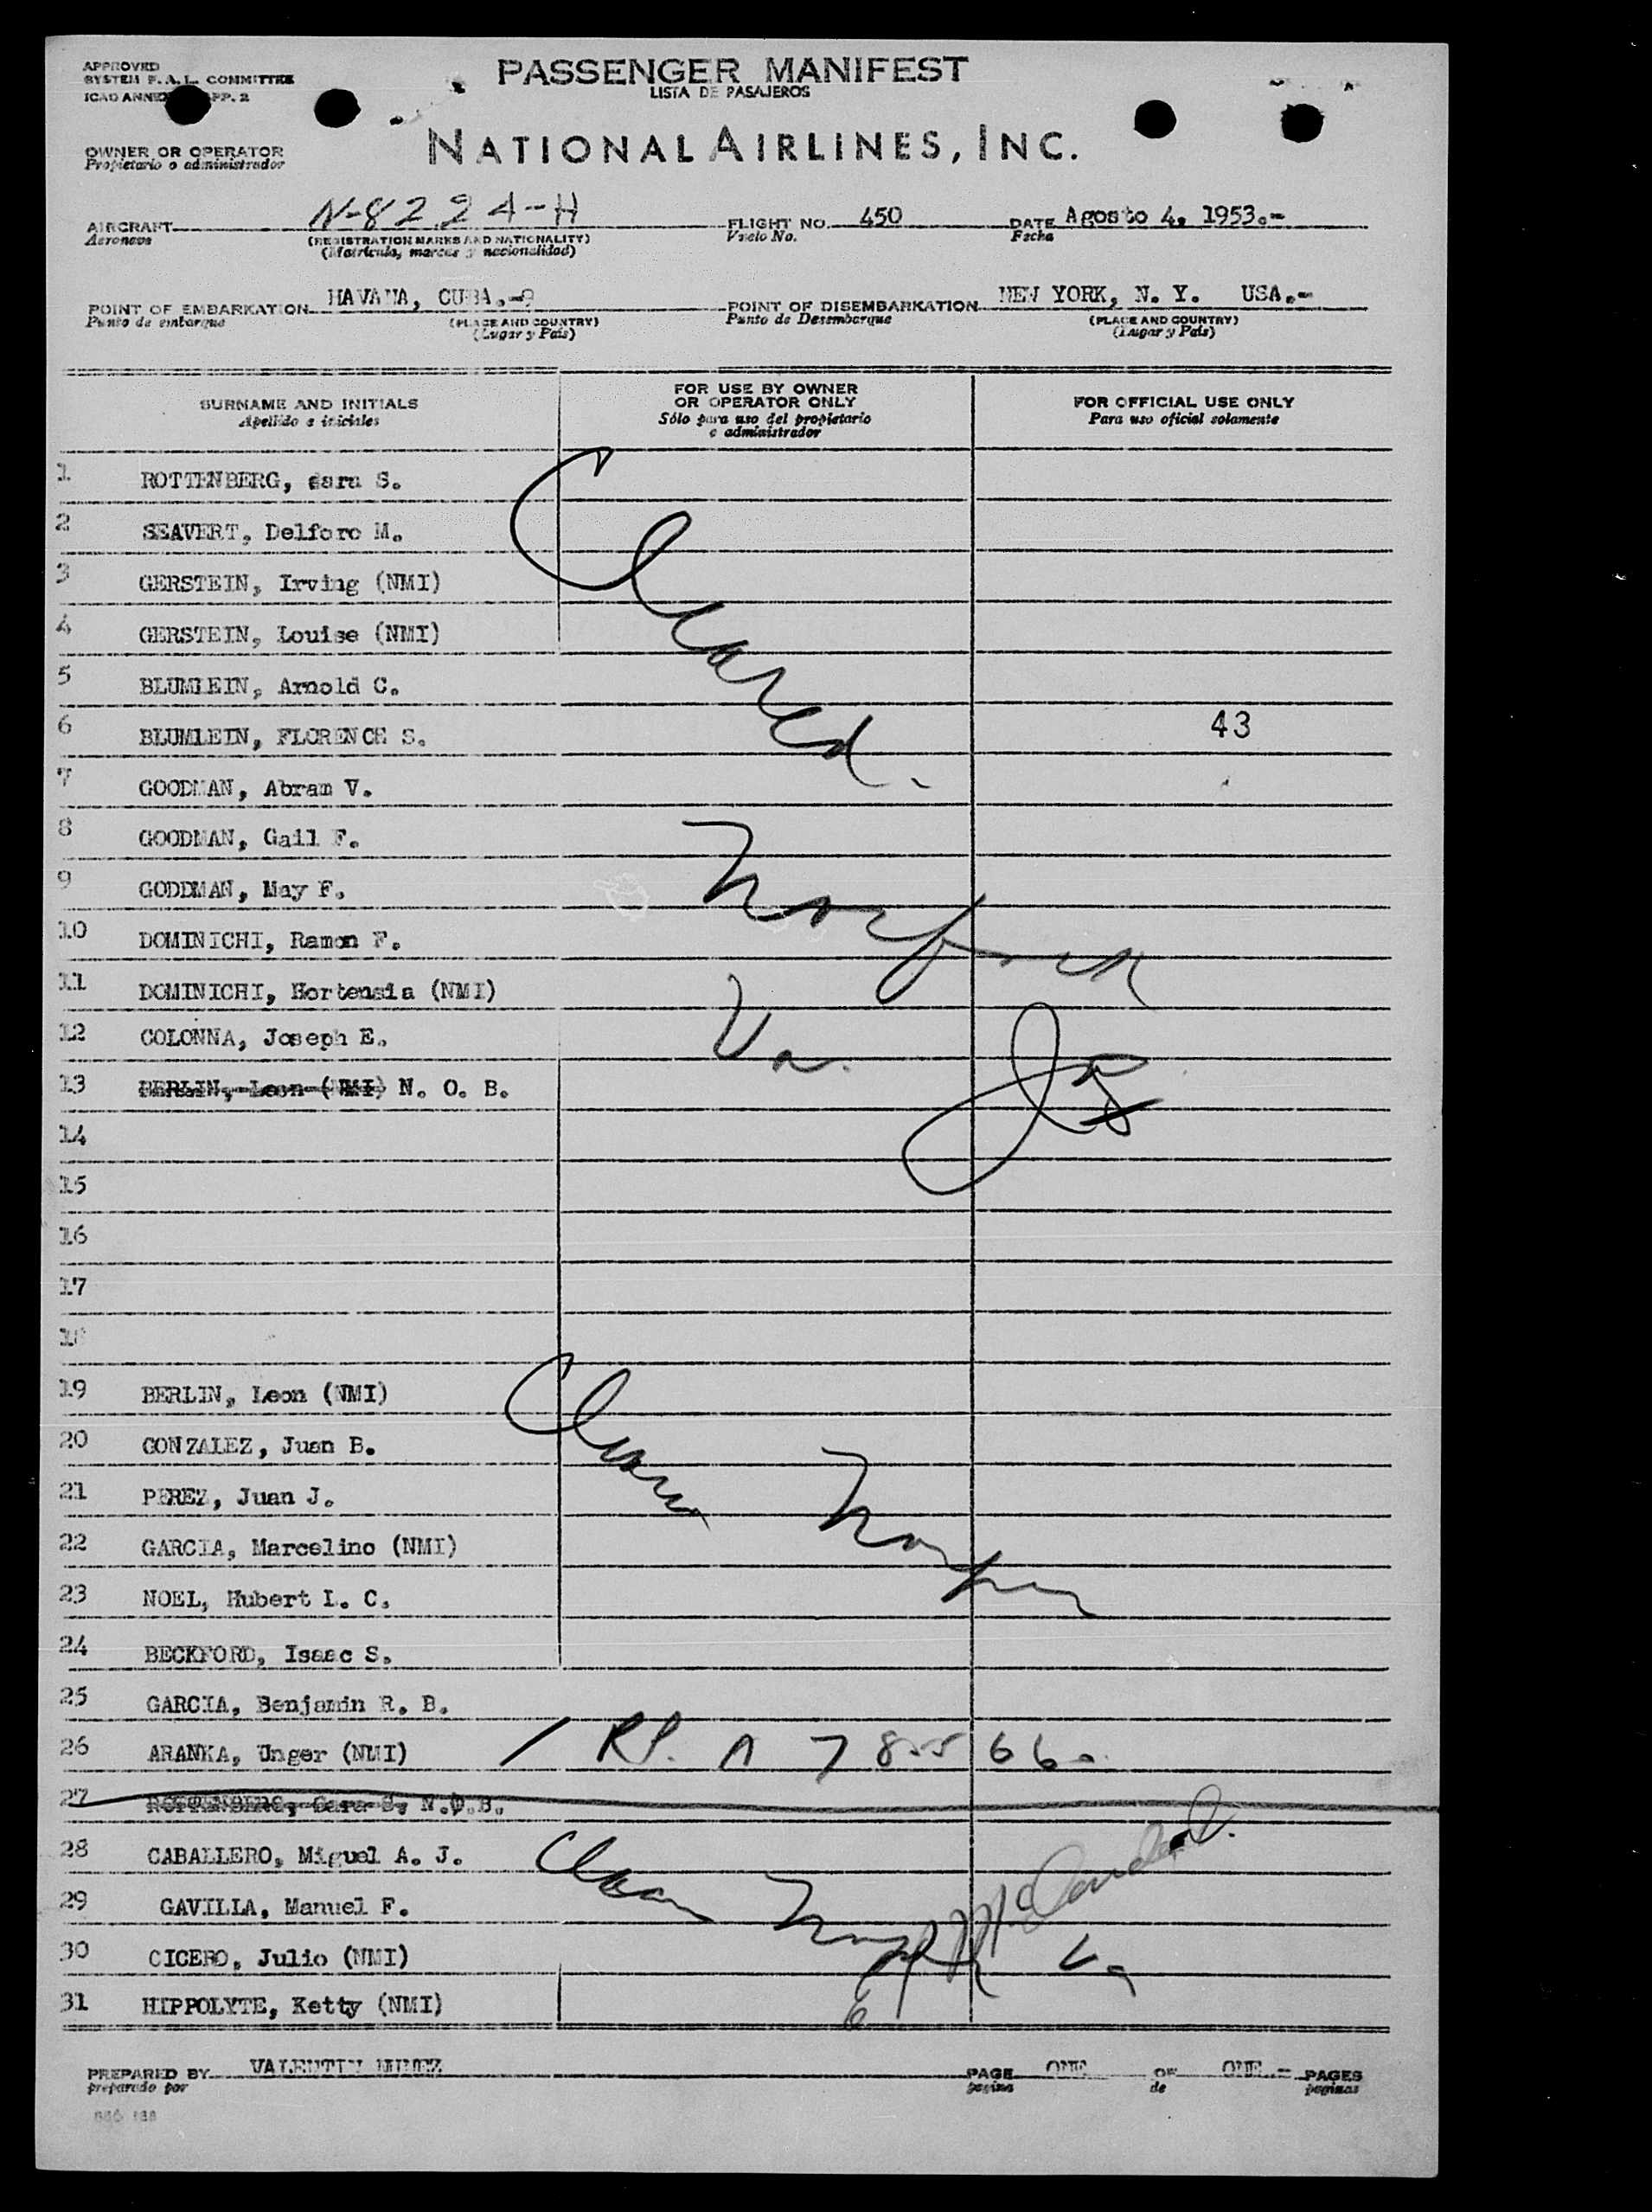 APPROVED
SYSTEM F. A. L. COMMITTEE
ICAO ANNEX APP. 2
PASSENGER MANIFEST
LISTA DE PASAJEROS
NATIONAL AIRLINES, INC.
OWNER OR OPERATOR
Propietario o administrador
AIRCRAFT N-8224-H FLIGHT NO. 450 DATE Agosto 4, 1953.-
Aeronave (REGISTRATION MARKS AND NATIONALITY) Vuelo No. Fecha
(Matricula, marcas y nacionalidad)
POINT OF EMBARKATION HAVANA, CUBA.- POINT OF DISEMBARKATION NEW YORK, N. Y. USA.-
Punto de embarque (PLACE AND COUNTRY) Punto de Desembarque (PLACE AND COUNTRY)
(Lugar y País) (Lugar y País)
SURNAME AND INITIALS
Apellido e iniciales
FOR USE BY OWNER
OR OPERATOR ONLY
Sólo para uso del propietario
o administrador
FOR OFFICIAL USE ONLY
Para uso oficial solamente
1 ROTTENBERG, sara S.
2 SEAVERT, Delforc M.
3 GERSTEIN, Irving (NMI)
4 GERSTEIN, Louise (NMI)
5 BLUMLEIN, Arnold C.
6 BLUMLEIN, FLORENCE S. 43
Cleared.
7 GOODMAN, Abram V.
8 GOODMAN, Gail F.
9 GODDMAN, May F.
Norfolk
10 DOMINICHI, Ramon F.
11 DOMINICHI, Hortensia (NMI)
12 COLONNA, Joseph E.
Va.
13 BERLIN, Leon (NMI) N. O. B.
14
15
16
17
18
19 BERLIN, Leon (NMI)
20 GONZALEZ, Juan B.
21 PEREZ, Juan J.
22 GARCIA, Marcelino (NMI)
23 NOEL, Hubert L. C.
24 BECKFORD, Isaac S.
25 GARCIA, Benjamin R. B.
26 ARANKA, Unger (NMI) / RP. A 7 855 660
27 ROTTENBERG, Sara S, N.O.B.
28 CABALLERO, Miguel A. J.
29 GAVILLA, Manuel F.
30 CICERO, Julio (NMI) Va
31 HIPPOLYTE, Ketty (NMI)
PREPARED BY VALENTIN NUNEZ PAGE ONE OF ONE.- PAGES
preparado por pagina de paginas